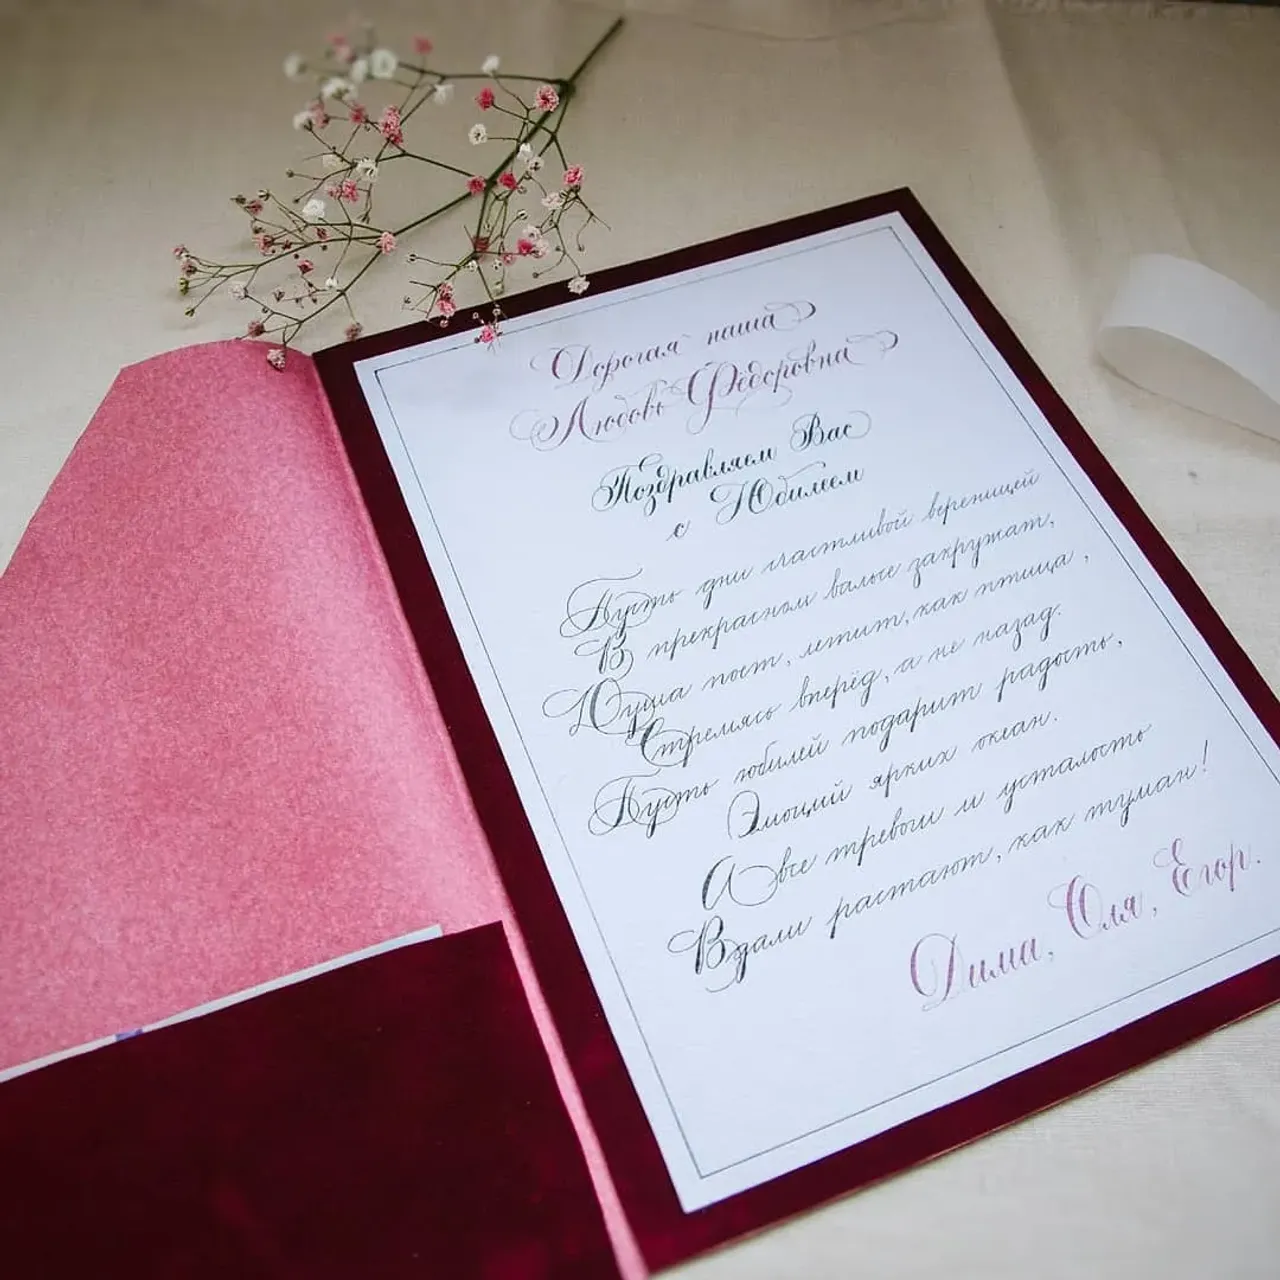 Дорогая наша
Любовь Фёдоровна
Поздравляем Вас
с Юбилеем
Пусть дни счастливой вереницей
В прекрасном вальсе закружат,
Душа поет, летит, как птица,
Стремясь вперёд, а не назад.
Пусть юбилей подарит радость,
Эмоций ярких океан.
А все тревоги и усталость
Вдали растают, как туман!
Дима, Юля, Егор.